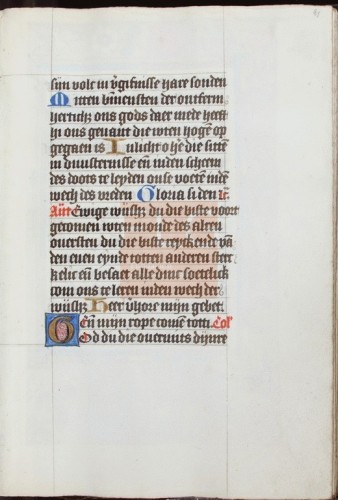 sijn volc in v̄gifnisse hare sonden
Mitten binnensten der ontferm
herticħ ons gods daer mede heeft
hi ons gevant die wten hogē op
gegaen is Inlicht o he die sitten
in duusternisse en̄ inden scheem
des doots te leyden onse voetē indē
wech des vreden Gloria si den
Ant Ewige wijsħ du die biste voort
gecomen wten monde des alren
oversten du die biste reyckende vā
den enen eynde totten anderen sterc
kelic en̄ besaet alle dinc soetelick
com ons te leren inden wech der
wijsħ Heer v̄hore mijn gebet.
En̄ mijn rope come totti. Col'
God du die overmits dijnre